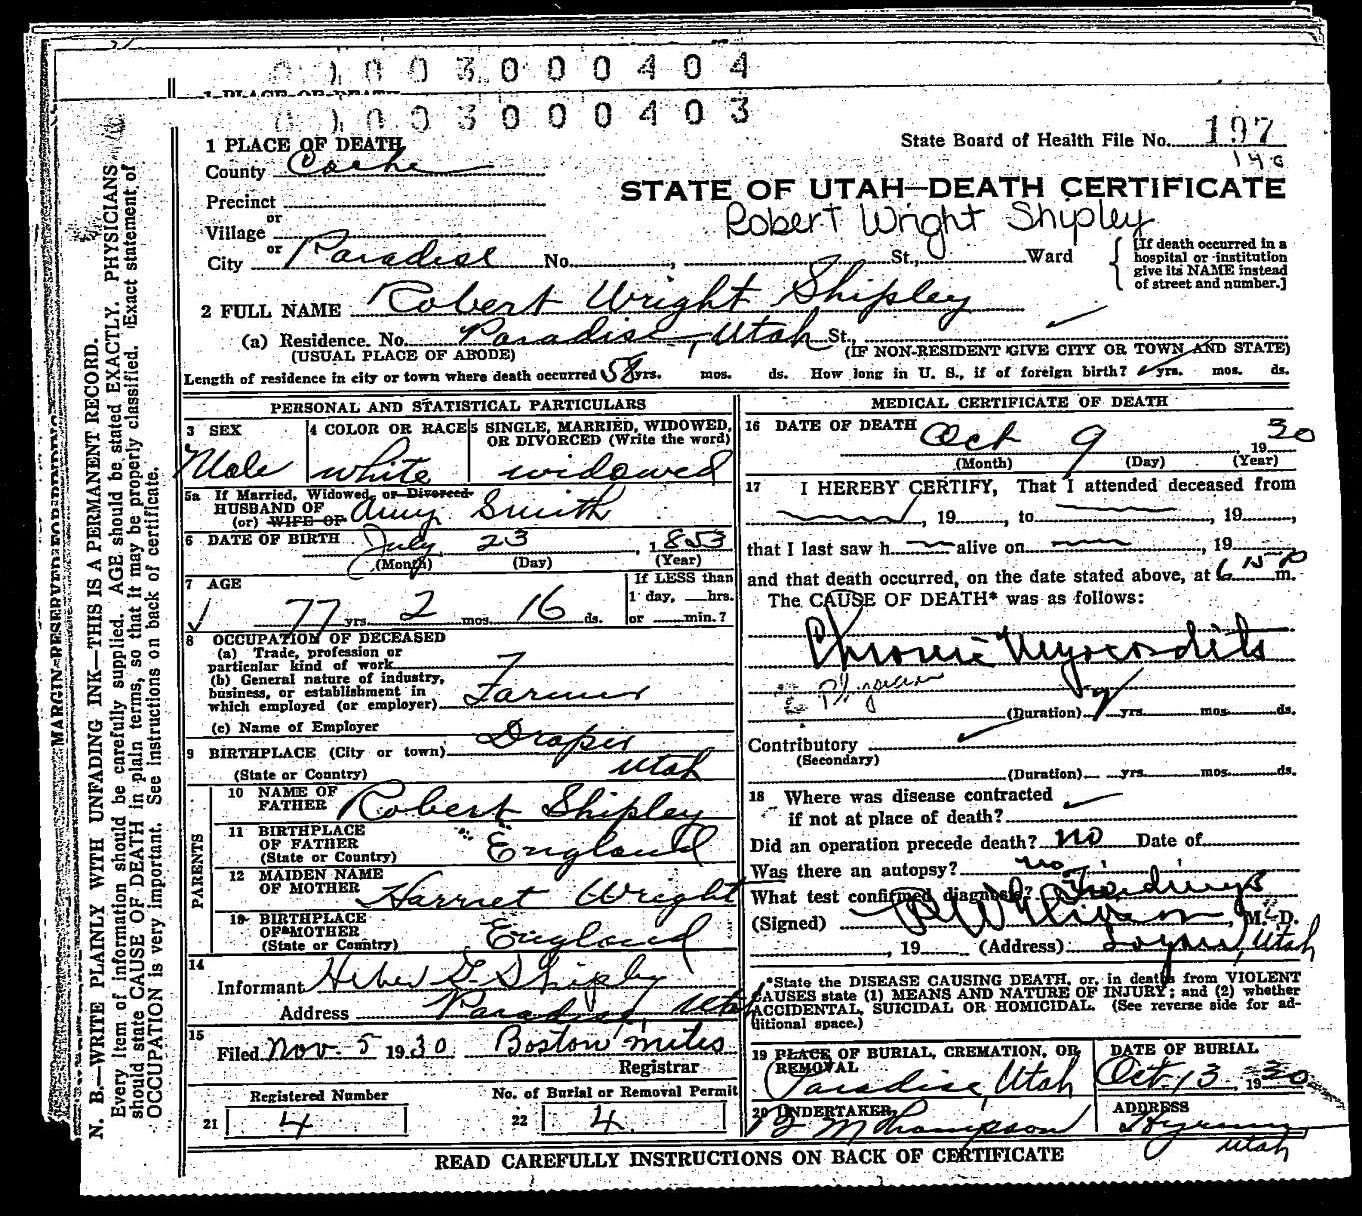 0 0 0 3 0 0 0 4 0 4
1 PLACE OF DEATH
0 0 3 0 0 0 4 0 3
1 PLACE OF DEATH
State Board of Health File No. 197
County Cache
STATE OF UTAH—DEATH CERTIFICATE
Robert Wright Shipley
Precinct
or
Village
or
City Paradise No. , St., Ward
[If death occurred in a hospital or institution give its NAME instead of street and number.]
2 FULL NAME Robert Wright Shipley
(a) Residence. No. Paradise, Utah St.,
(USUAL PLACE OF ABODE) (IF NON-RESIDENT GIVE CITY OR TOWN AND STATE)
Length of residence in city or town where death occurred 58 yrs. mos. ds. How long in U. S., if of foreign birth? yrs. mos. ds.
PERSONAL AND STATISTICAL PARTICULARS
3 SEX
Male
4 COLOR OR RACE
white
5 SINGLE, MARRIED, WIDOWED, OR DIVORCED (Write the word)
widowed
5a If Married, Widowed, or Divorced
HUSBAND OF
(or) WIFE OF Amy Smith
6 DATE OF BIRTH July 23, 1853
(Month) (Day) (Year)
7 AGE
77 yrs. 2 mos. 16 ds.
If LESS than
1 day, hrs.
or min.?
8 OCCUPATION OF DECEASED
(a) Trade, profession or
particular kind of work
(b) General nature of industry,
business, or establishment in
which employed (or employer) Farmer
(c) Name of Employer
9 BIRTHPLACE (City or town) Draper
(State or Country) Utah
PARENTS
10 NAME OF FATHER Robert Shipley
11 BIRTHPLACE OF FATHER
(State or Country) England
12 MAIDEN NAME OF MOTHER Harriet Wright
13 BIRTHPLACE OF MOTHER
(State or Country) England
14
Informant Heber S. Shipley
Address Paradise, Utah
15
Filed Nov. 5 1930 Boston mites
Registrar
Registered Number
21 4
No. of Burial or Removal Permit
22 4
MEDICAL CERTIFICATE OF DEATH
16 DATE OF DEATH Oct 9 1930
(Month) (Day) (Year)
17 I HEREBY CERTIFY, That I attended deceased from
, 19 , to , 19 ,
that I last saw h alive on , 19
and that death occurred, on the date stated above, at 6 15 P m.
The CAUSE OF DEATH* was as follows:
Chronic Myocarditis
Physician
(Duration) yrs. mos. ds.
Contributory
(Secondary)
(Duration) yrs. mos. ds.
18 Where was disease contracted
if not at place of death?
Did an operation precede death? no Date of
Was there an autopsy? no
What test confirmed diagnosis? Findings
(Signed) , M. D.
, 19 (Address) Logan, Utah
*State the DISEASE CAUSING DEATH, or, in deaths from VIOLENT
CAUSES state (1) MEANS AND NATURE OF INJURY; and (2) whether
ACCIDENTAL, SUICIDAL OR HOMICIDAL. (See reverse side for ad-
ditional space.)
19 PLACE OF BURIAL, CREMATION, OR REMOVAL
Paradise, Utah
DATE OF BURIAL
Oct. 13, 1930
20 UNDERTAKER
M Thompson
ADDRESS
Hyrum
Utah
READ CAREFULLY INSTRUCTIONS ON BACK OF CERTIFICATE
MARGIN RESERVED FOR BINDING
N. B.—WRITE PLAINLY WITH UNFADING INK—THIS IS A PERMANENT RECORD.
Every item of information should be carefully supplied. AGE should be stated EXACTLY. PHYSICIANS
should state CAUSE OF DEATH in plain terms, so that it may be properly classified. Exact statement of
OCCUPATION is very important. See instructions on back of certificate.